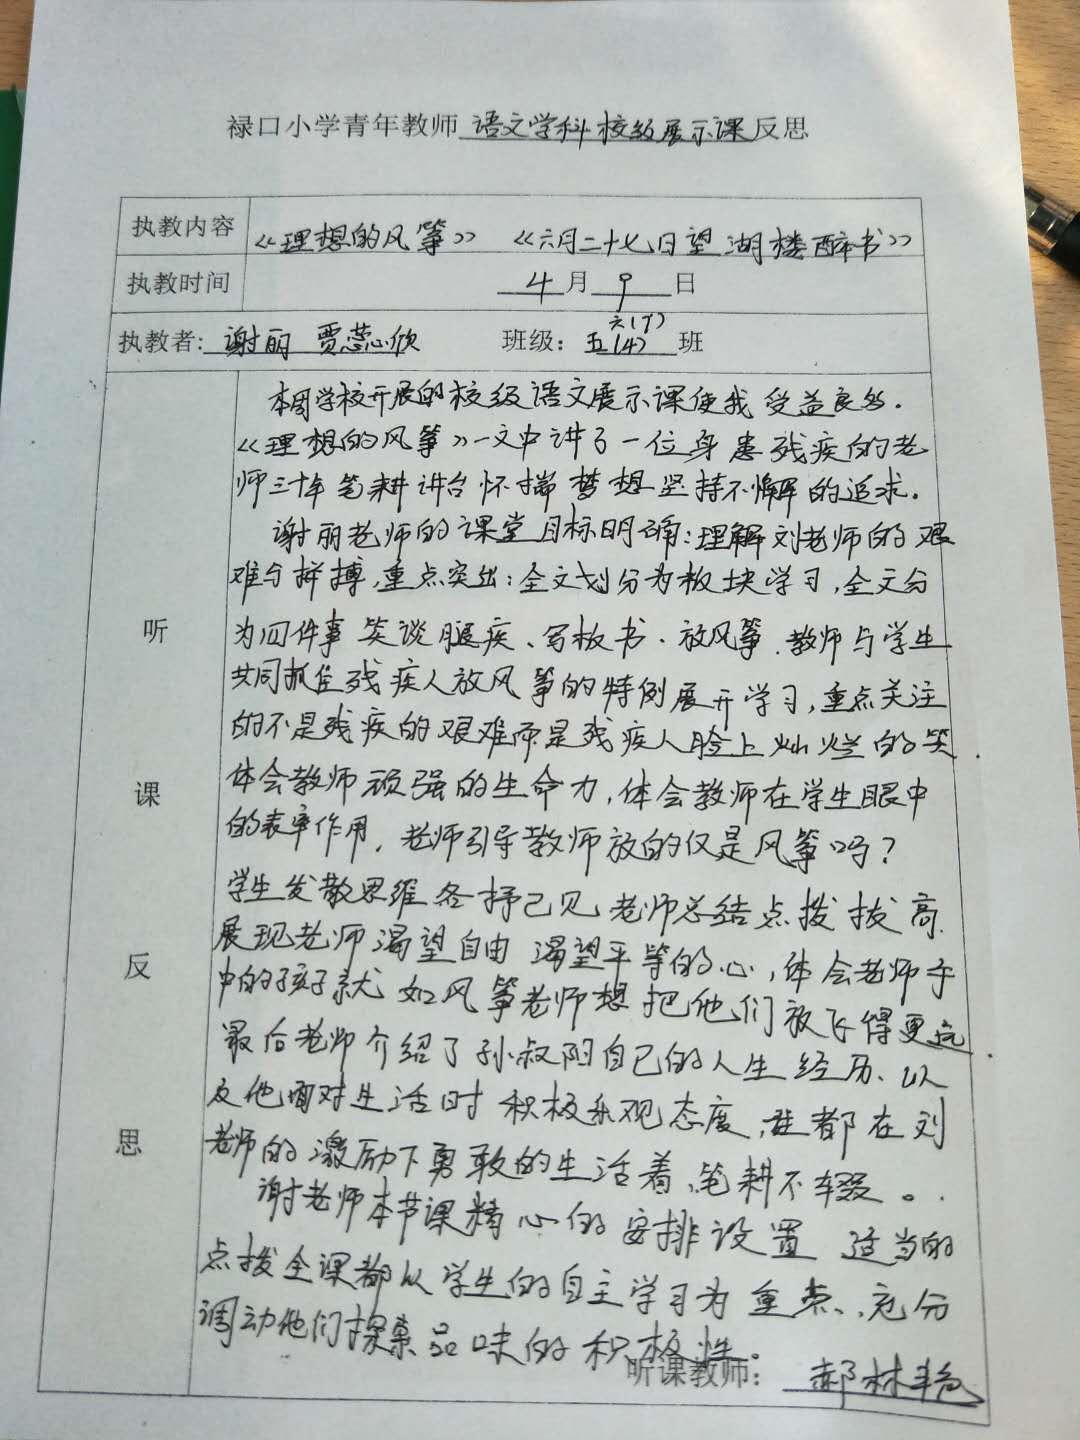 禄口小学青年教师 语文学科校级展示课 反思
执教内容 《理想的风筝》 《六月二十七日望湖楼醉书》
执教时间 4月9日
六(1)
执教者: 谢丽 贾蕊欣 班级: 五(4) 班
听课反思
本周学校开展的校级语文展示课使我受益良多.
《理想的风筝》一文中讲了一位身患残疾的老
师三十年笔耕讲台怀揣梦想坚持不懈的追求.
谢丽老师的课堂目标明确:理解刘老师的艰
难与拼搏,重点突出:全文划分为板块学习,全文分
为四件事 笑谈腿疾、写板书.放风筝.教师与学生
共同抓住残疾人放风筝的特例展开学习,重点关注
的不是残疾的艰难而是残疾人脸上灿烂的笑.
体会教师顽强的生命力,体会教师在学生眼中
的表率作用.老师引导教师放的仅是风筝吗?
学生发散思维各抒己见 老师总结点拨拔高.
展现老师渴望自由 渴望平等的心,体会老师手
中的孩子就如风筝老师想把他们放飞得更远.
最后老师介绍了孙叔阳自己的人生经历、以
及他面对生活时积极乐观态度,这都在刘
老师的激励下勇敢的生活着,笔耕不辍。
谢老师本节课精心的安排设置 适当的
点拨全课都以学生的自主学习为重点,充分
调动他们探索品味的积极性。
听课教师: 郝林艳